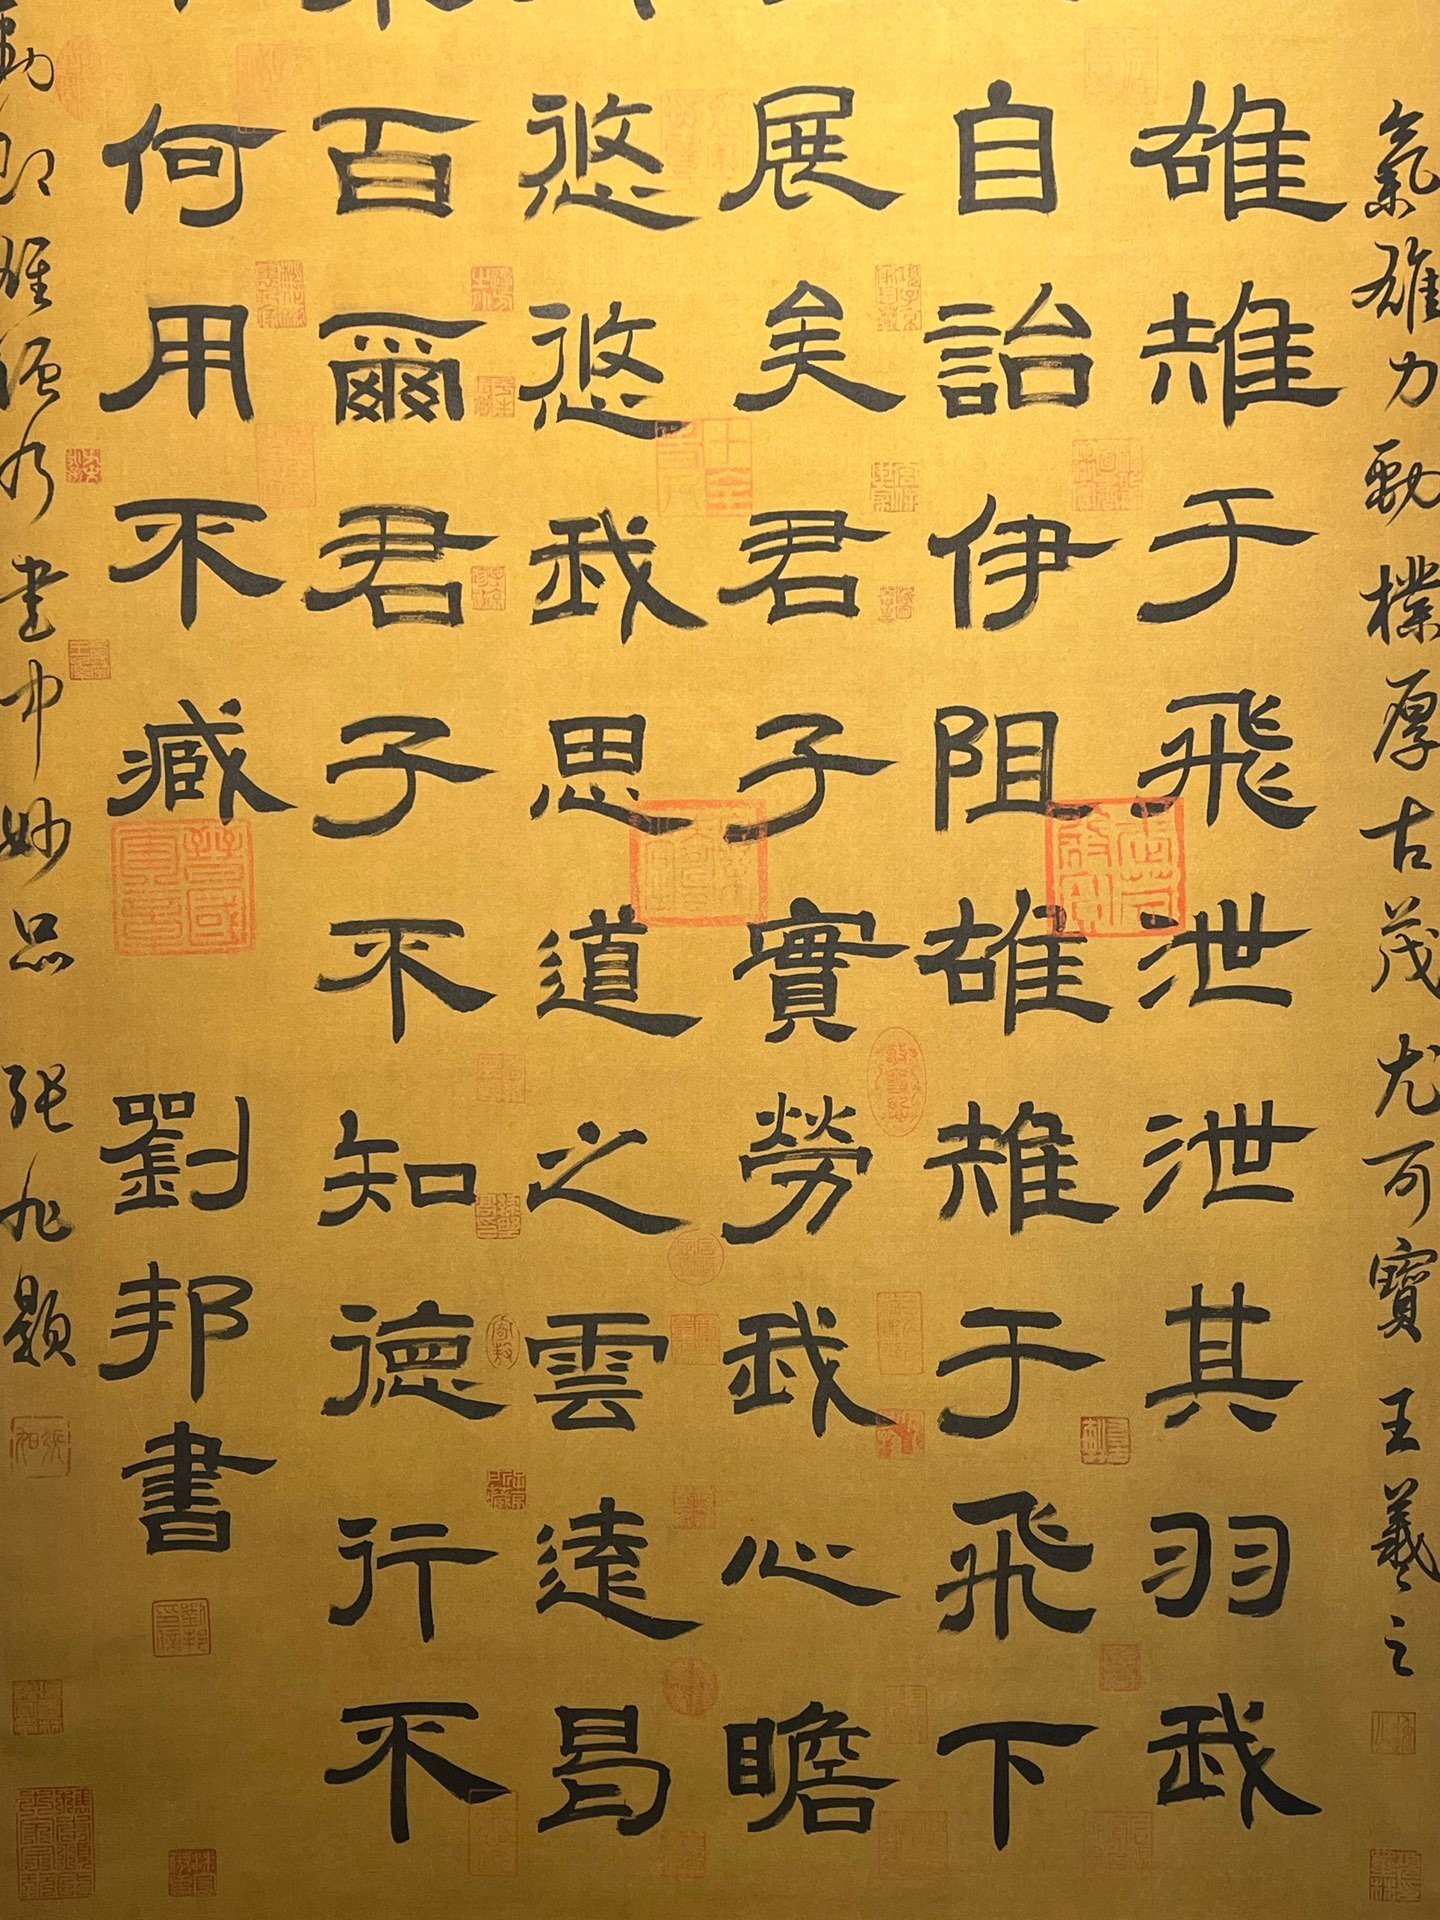 氣雄力勁樸厚古茂尤可寶王羲之
雄雉于飛泄泄其羽我
自詒伊阻雄雉于飛下
展矣君子實勞我心瞻
悠悠我思道之雲遠曷
百爾君子不知德行不
何用不臧劉邦書
劉邦印信
雄強乃書中妙品張旭題